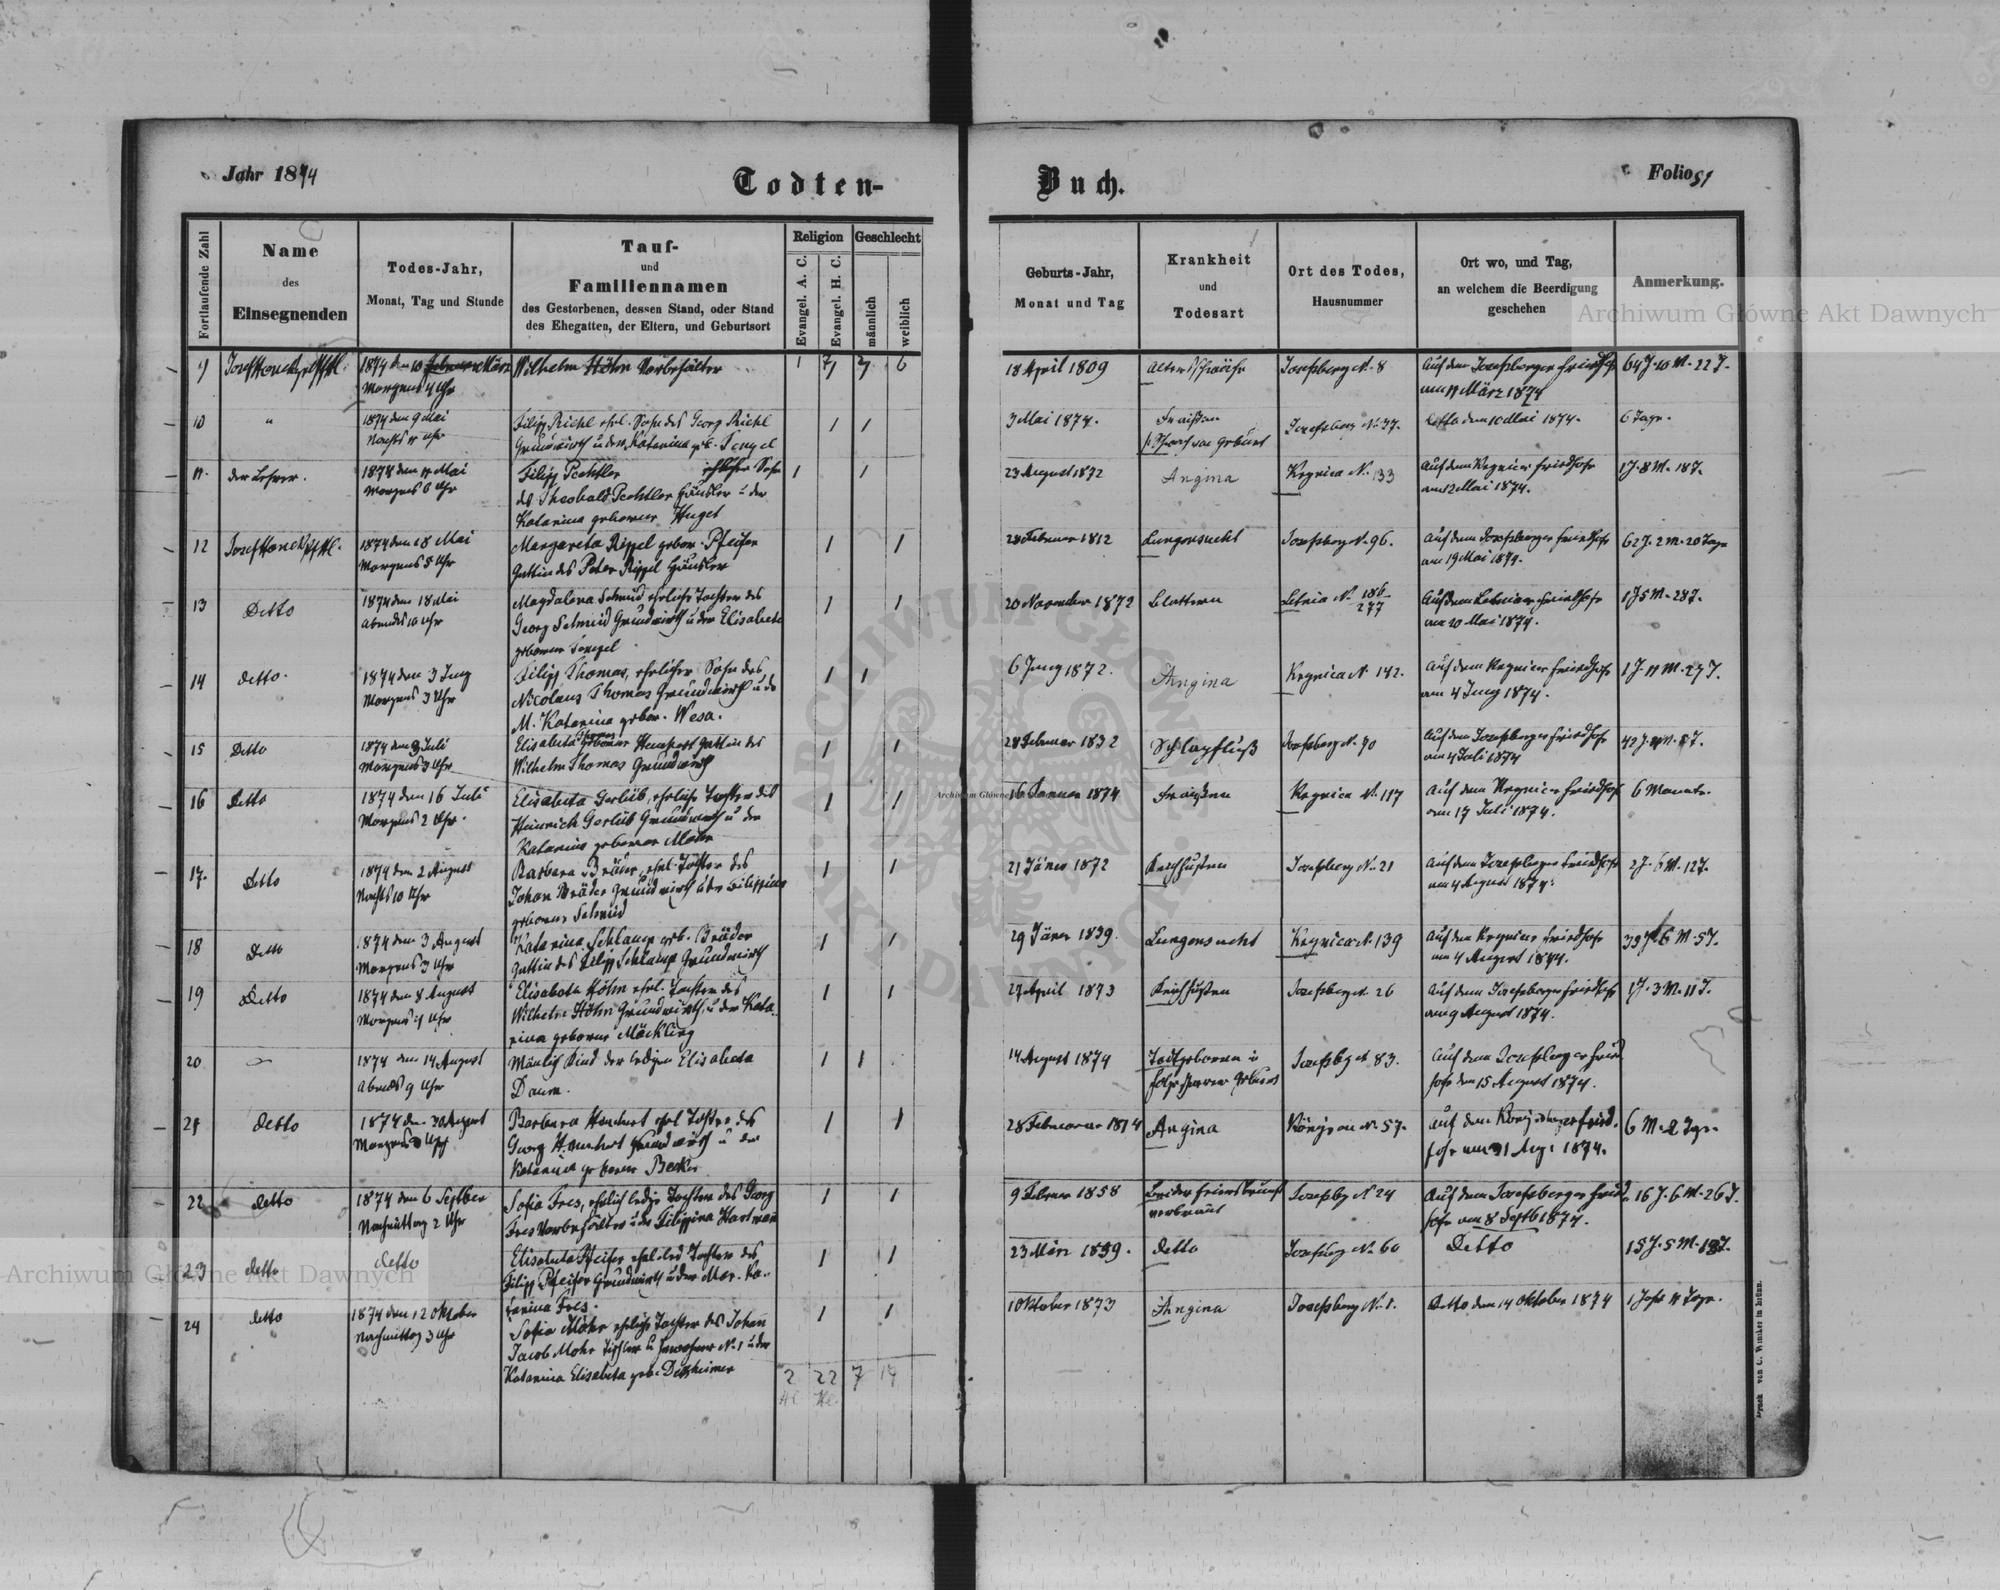 Jahr 1874
Todten-
Buch.
Folio 51
Fortlaufende Zahl
Name
des
Einsegnenden
Todes-Jahr,
Monat, Tag und Stunde
Tauf-
und
Familiennamen
des Gestorbenen, dessen Stand, oder Stand
des Ehegatten, der Eltern, und Geburtsort
Religion
Evangel. A. C.
Evangel. H. C.
Geschlecht
männlich
weiblich
Geburts-Jahr,
Monat und Tag
Krankheit
und
Todesart
Ort des Todes,
Hausnummer
Ort wo, und Tag,
an welchem die Beerdigung
geschehen
Anmerkung.
9
1874 den 10 Februar März
Morgens 4 Uhr
Wilhelm Höhn Vorbehälter
1 7 7 6
18 April 1809
Altersschwäche
Josefsberg N. 8
Auf dem Josefsberger Friedhofe
am 11 März 1874
64 J. 10 M. 22 T.
10
"
1874 den 9 Mai
Nachts 11 Uhr
Filipp Richl ehel. Sohn des Georg Richl
Grundwirth u der Katarina geb. Sengel
1 1
3 Mai 1874.
Fraißen
Josefsberg No. 37.
Detto den 10 Mai 1874.
6 Tage.
11.
der Lehrer.
1874 den 11 Mai
Morgens 6 Uhr
Filipp Pechtler ehelicher Sohn
des Theobald Pechtler Häusler u der
Katarina geborene Huget
1 1
23 August 1872
Angina
Kognica N. 133
Auf dem Kognicer Friedhofe
am 12 Mai 1874.
1 J. 8 M. 18 T.
12
1874 den 18 Mai
Morgens 5 Uhr
Margareta Rippel gebor. Pfeifer
Gattin des Peter Rippel Häusler
1 1
28 Februar 1812
Lungensucht
Josefsberg N. 96.
Auf dem Josefsberger Friedhofe
am 19 Mai 1874.
62 J. 2 M. 20 Tage
13
Detto
1874 den 18 Mai
Abends 10 Uhr
Magdalena Schmid eheliche Tochter des
Georg Schmid Grundwirth u der Elisabeta
geborene Sengel
1 1
20 November 1872
Blattern
Letnia N. 186/277
Auf dem Letniaer Friedhofe
am 20 Mai 1874.
1 J 5 M. 28 T.
14
detto.
1874 den 3 Juny
Morgens 3 Uhr
Filipp Thomas, ehelicher Sohn des
Nicolaus Thomas Grundwirth u de
M. Katarina gebor. Wesa.
1 1
6 Juny 1872.
Angina
Kognica N. 142.
Auf dem Kognicer Friedhofe
am 4 Juny 1874.
1 J 11 M. 27 T.
15
Detto
1874 den 3 Juli
Morgens 3 Uhr
Elisabeta Thomas geborene Henhert Gattin des
Wilhelm Thomas Grundwirth
1 1
28 Februar 1832
Schlagfluß
Josefsberg N. 70
Auf dem Josefsberger Friedhofe
am 4 Juli 1874
16
Detto
1874 den 16 Juli
Morgens 2 Uhr.
Elisabeta Gerlüb, eheliche Tochter des
Heinrich Gerlüb Grundwirth u der
Katarina geborene Mohr
1 1
16 Januar 1874
Fraißen
Kognica N. 117
Auf dem Kognicer Friedhofe
am 17 Juli 1874.
6 Monate.
17.
Detto
1874 den 2 August
Nachts 10 Uhr
Barbara Bräder, ehel. Tochter des
Johan Bräder Grundwirth u der Filippina
geborene Schmid
1 1
21 Jäner 1872
Keichhusten
Josefsberg N. 21
Auf dem Josefsberger Friedhofe
am 4 August 1874.
2 J. 6 M. 12 T.
18
Detto
1874 den 3 August
Morgens 3 Uhr
Katarina Schlamp geb. Bräder
Gattin des Filipp Schlamp Grundwirth
1 1
29 Jäner 1839.
Lungensucht
Kognica N. 139
Auf dem Kognicer Friedhofe
am 4 August 1874.
6 M. 5 T.
19
Detto
1874 den 8 August
Morgens 4 Uhr
Elisabeta Höhn ehel. Tochter des
Wilhelm Höhn Grundwirth u der Kata-
rina geborene Mäckling
1 1
27 April 1873
Keichhusten
Josefsberg N. 26
Auf dem Josefsberger Friedhofe
am 9 August 1874.
1 J. 3 M. 11 T.
20
1874 den 14 August
Abends 9 Uhr
Mänlich Kind der ledigen Elisabeta
Daum.
1 1
14 August 1874
Todtgeboren in
folge schwerer Geburt
Josefsbg N 83.
Auf dem Josefsberger Fried
hofe den 15 August 1874.
21
detto
1874 den 30 August
Barbara Henhert ehel Tochter des
Georg Henhert Grundwirth u der
Katarina geborene Becker
1 1
28 Februar 1874
Angina
Königsau N. 57.
Auf dem Königsauer Fried-
hofe am 31 Aug. 1874.
6 M. 2 Tge.
22
detto
1874 den 6 September
Nachmittag 2 Uhr
Sofia Fres, ehelich ledige Tochter des Georg
Fres Vorbehälter u der Filippina Hartman
1 1
9 Februar 1858
Bei der Feuersbrunst
verbrant
Josefsbg N 24
Auf dem Josefsberger Fried
hofe am 8 Septb 1874.
16 J. 6 M. 26 T.
23
detto
detto
Elisabeta Pfeifer ehel. led Tochter des
Filipp Pfeifer Grundwirth u der Mar. Ka-
tarina Fres.
1 1
23 März 1859.
detto
Josefsbg N. 60
Detto
15 J. 5 M.
24
detto
1874 den 12 Oktober
Nachmittag 3 Uhr
Sofia Mohr eheliche Tochter des Johan
Jacob Mohr Tischler u Inwohner N. 1 u der
Katarina Elisabeta geb. Ditzheimer
1 1
1 Oktober 1873
Angina
Josefsberg N. 1.
Detto den 14 Oktober 1874
1 Jahr 11 Tage.
2 22 7 17
Druck von C. Winiker in Brünn.
Archiwum Główne Akt Dawnych
Archiwum Główne Akt Dawnych
ARCHIWUM GŁÓWNE · AKT DAWNYCH ·